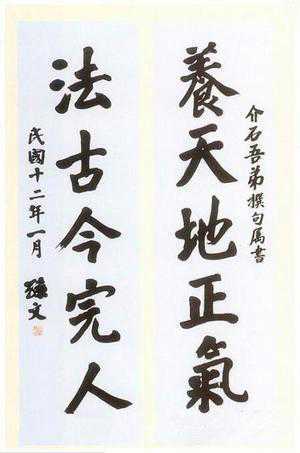 介石吾弟撰句属書
養天地正氣
法古今完人
民國十二年一月
孫文